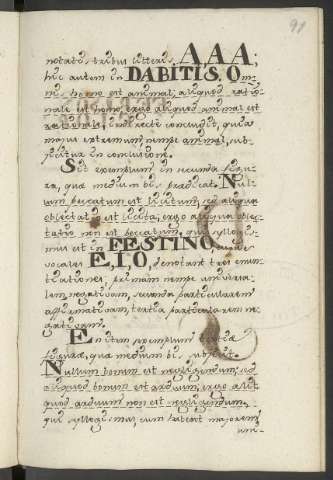 91
notatus tribus litteris A, A, A;
hic autem in DABITIS. Om-
nis homo est animal, aliquod ratio-
nale est homo, ergo aliquod animal est
rationale, non recte concludit, quia
majus extremum nempe animal, sub-
jicitur in conclusione.
Sit exemplum in secunda figu-
ra, qua medium bis praedicat. Nul-
lum peccatum est licitum, sed aliqua
oblectatio est licita, ergo aliqua oblec-
tatio non est peccatum, qui syllogis-
mus est in FESTINO, cujus
vocales E, I, O, denotant tres enun-
tiationes, primam nempe universa-
lem negativam, secunda particularem
affirmativam, tertia particularem ne-
gativam.
En item exemplum tertiae
figurae, qua medium bis subjicit.
Nullum bonum est negligendum, sed
aliquod bonum est arduum, ergo aliquod
arduum non est negligendum,
qui syllogismus, cum habeat majorem
um-